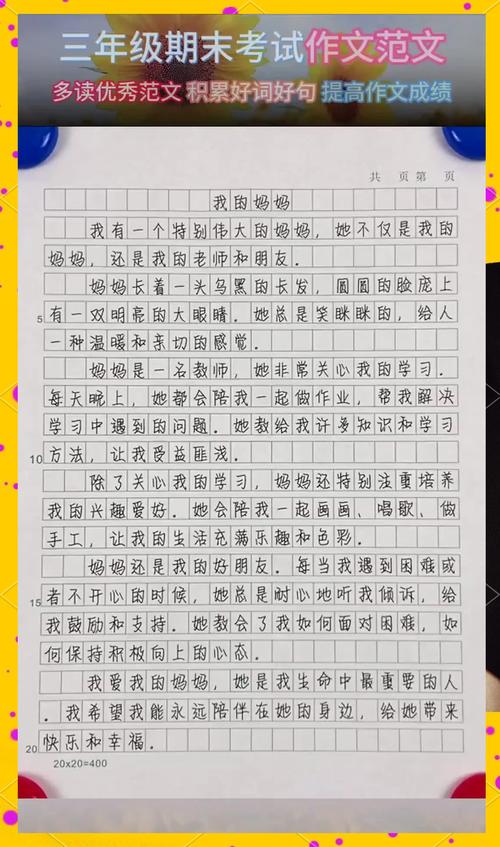 三年级期末考试作文范文
多读优秀范文 积累好词好句 提高作文成绩
共 页 第 页
我的妈妈
我有一个特别伟大的妈妈，她不仅是我的
妈妈，还是我的老师和朋友．
妈妈长着一头乌黑的长发，圆圆的脸庞上
5 有一双明亮的大眼睛．她总是笑眯眯的，给人
一种温暖和亲切的感觉．
妈妈是一名教师，她非常关心我的学习．
每天晚上，她都会陪我一起做作业，帮我解决
学习中遇到的问题．她教给我许多知识和学习
10 方法，让我受益匪浅．
除了关心我的学习，妈妈还特别注重培养
我的兴趣爱好．她会陪我一起画画、唱歌、做
手工，让我的生活充满乐趣和色彩．
妈妈还是我的好朋友．每当我遇到困难或
15 者不开心的时候，她总是耐心地听我倾诉，给
我鼓励和支持．她教会了我如何面对困难，如
何保持积极向上的心态．
我爱我的妈妈，她是我生命中最重要的人
．我希望我能永远陪伴在她的身边，给她带来
20 快乐和幸福．
20x20=400